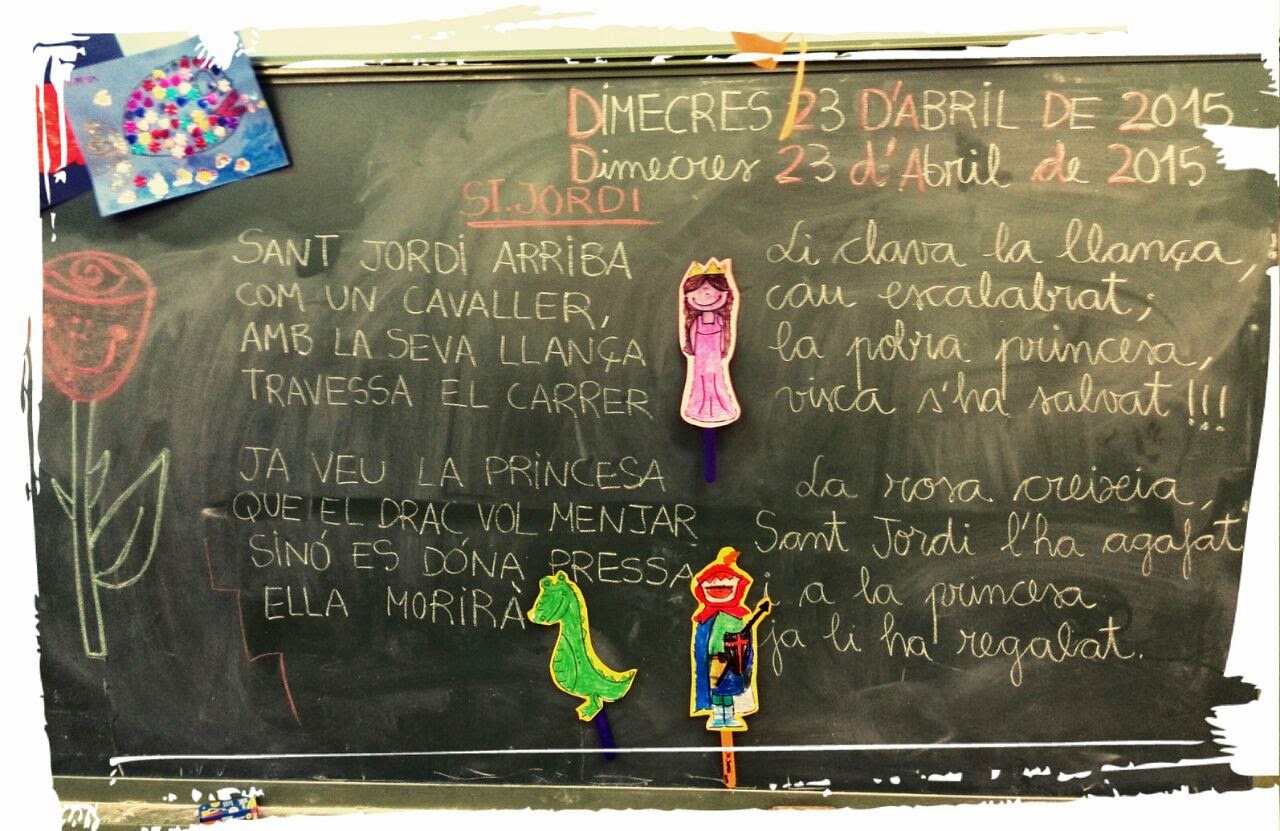 DIMECRES 23 D'ABRIL DE 2015
Dimecres 23 d'Abril de 2015
ST. JORDI
SANT JORDI ARRIBA
COM UN CAVALLER,
AMB LA SEVA LLANÇA
TRAVESSA EL CARRER
JA VEU LA PRINCESA
QUE EL DRAC VOL MENJAR
SINÓ ES DÓNA PRESSA
ELLA MORIRÀ
Li clava la llança,
cau escalabrat;
la pobra princesa,
visca s'ha salvat!!!
La rosa creixeia,
Sant Jordi l'ha agafat
i a la princesa
ja li ha regalat.